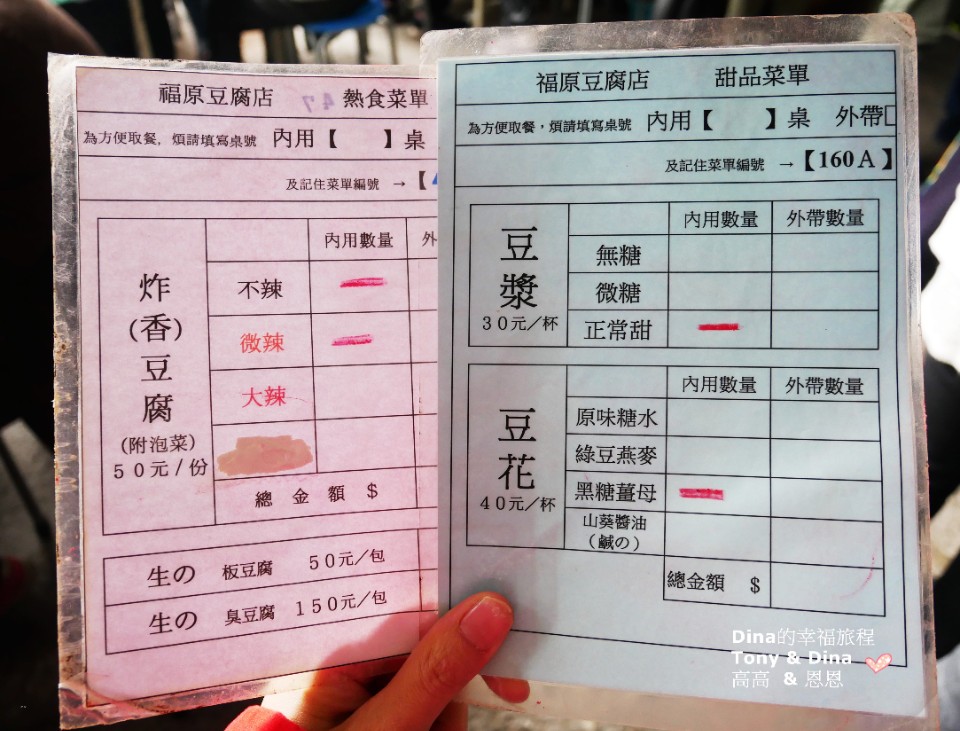 福原豆腐店 熱食菜單
為方便取餐，煩請填寫桌號 內用【 】桌
及記住菜單編號 →【
內用數量
炸(香)豆腐
(附泡菜)
50元/份
不辣
微辣
大辣
總金額 $
生の 板豆腐 50元/包
生の 臭豆腐 150元/包
福原豆腐店 甜品菜單
為方便取餐，煩請填寫桌號 內用【 】桌 外帶
及記住菜單編號 →【160A】
內用數量 外帶數量
豆漿
30元/杯
無糖
微糖
正常甜
內用數量 外帶數量
豆花
40元/杯
原味糖水
綠豆燕麥
黑糖薑母
山葵醬油
(鹹の)
總金額 $
Dina的幸福旅程
Tony & Dina
高高 & 恩恩